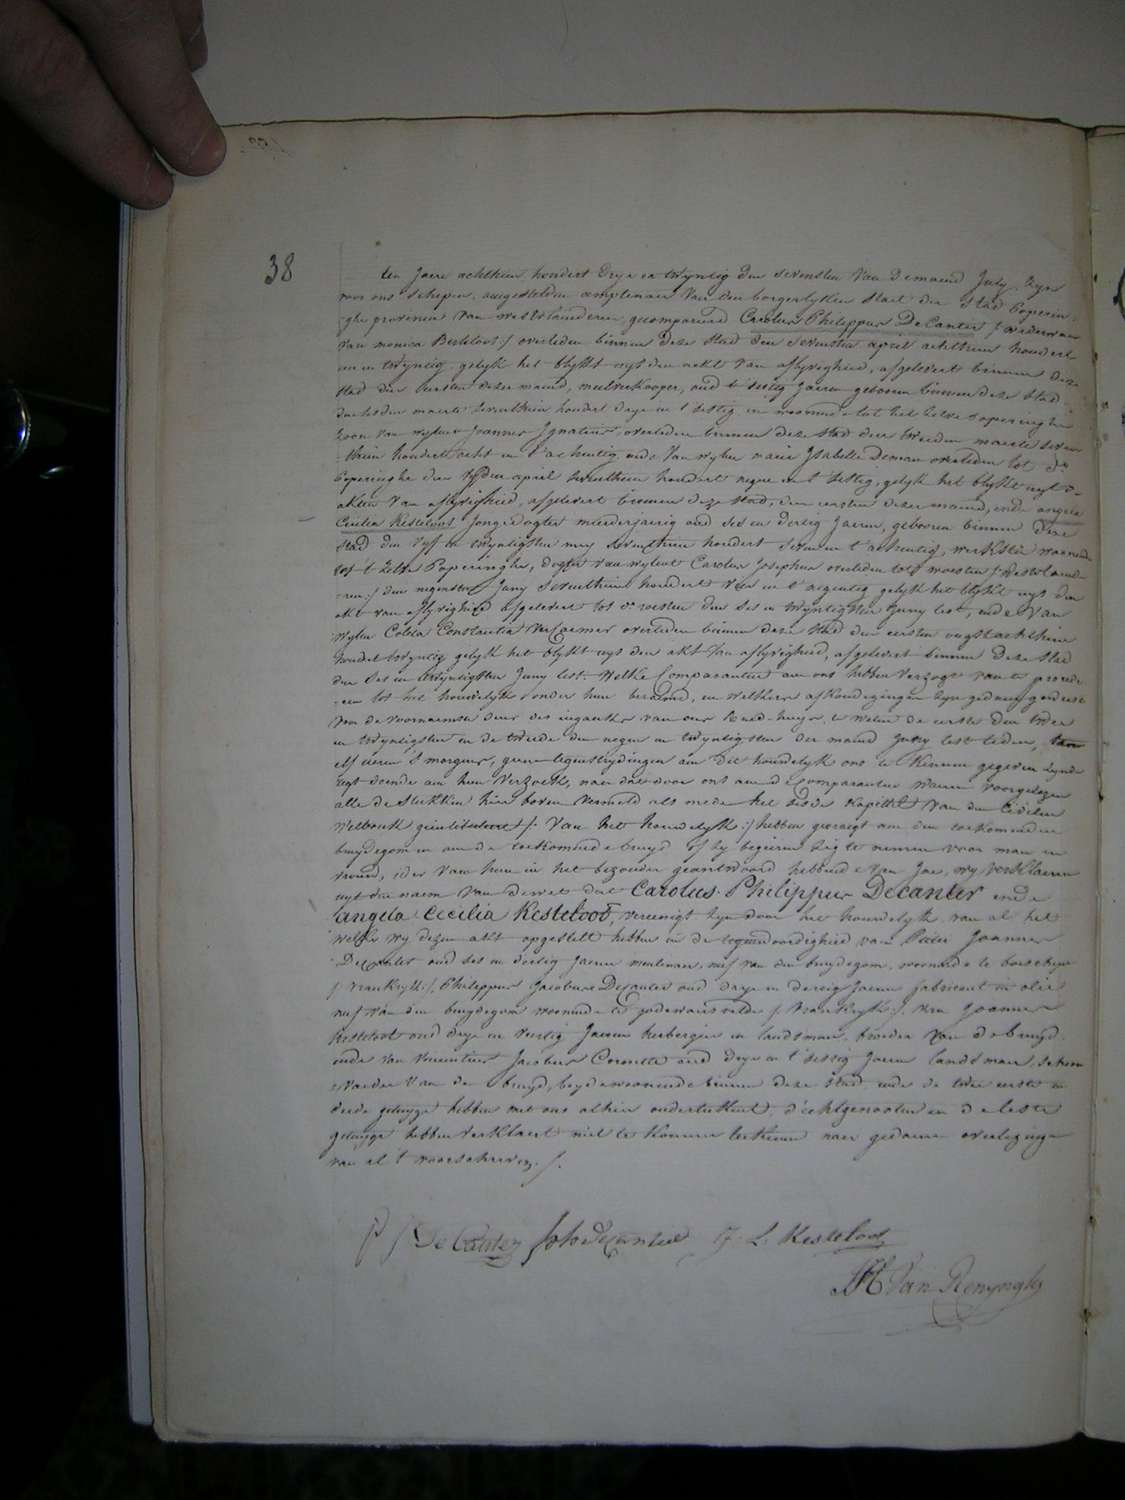 38
ten Jaere achthien hondert drye en twyntig den sevensten Van Demaend July. Zyn
voor ons schepen, aengestelden amptenaer Van den borgerlyken staet der stad Poperin-
ghe provencie Van westvlaenderen gecompareerd Carolus Philippus DeCanter / weduwaer
van monica Besteloot / overleden binnen deze stad den sevensten april achthien hondert
en twyntig gelyk het blykt uyt den akt van aflyvigheid, afgelevert binnen deze
stad den eersten dezer maend, oud t'sestig jaeren geboren binnen deze stad
maerte seventhien hondert drye en t'sestig en woonende tot het zelve Poperinghe
zoon van wylent Joannes Ignatius overleden binnen deze stad den tweeden maerte seven-
thien hondert acht en t'achentig, ende Van wylen marie Ysabelle Deman overleden tot
Poperinghe den april seventhien hondert negen en t'sestig, gelyk het blykt uyt d'
akten Van aflyvigheid, afgelevert binnen deze stad, den eersten dezer maend, ende angela
Cecilia Kesteloot / Jonge dogter meerderjaerig oud ses en dertig Jaeren, geboren binnen deze
stad den vyf en twyntigsten mey seventhien hondert seven en t'achentig, werkster woonende
tot t'zelve Poperinghe, dogter van wylent Carolus Josephus overleden tot woesten / westvlaende-
-ren / den negensten Juny seventhien hondert vier en t'negentig gelyk het blykt uyt den
akt van aflyvigheid afgelevert tot woesten den ses en twyntigsten Juny lest, ende Van
wylen Coleta Constantia overleden binnen deze stad den eersten ougst achthien
hondert twyntig gelyk het blykt uyt den akt Van aflyvigheid, afgelevert binnen deze stad
den ses en twyntigsten Juny lest. Welke Comparanten aen ons hebben verzogt van te proced-
-eren tot het houwelyk onder hun beraemd, en welkers afkondigingen zyn gedaen geweest
voor de voornaemste deur des ingancks van ons Raed-huys, te weten de eerste den twee
en twyntigsten en de tweede den negen en twyntigsten der maend Juny lest leden, ten
elf ueren s'morgens, geene tegenstrydingen aen dit houwelyk ons te kennen gegeven zynde
regt doende aen hun Verzoek, naer dat door ons aen de comparanten waeren voorgelezen
alle de stukken hier boven vermeld als mede het sesde Kapittel Van den Civilen
Wetboek geintituleert / Van het houwelyk :/ hebben gevraegt aen den toekomenden
bruydegom en aen de toekomende bruyd of zy begeeren zig te nemen voor man en
vrouw, ider van hun in het bezonder geantwoord hebbende van Jae, wy verklaeren
uyt den naem Van de wet dat Carolus Philippus Decanter ende
angela Cecilia Kesteloot, vereenigt zyn door het houwelyk, van al het
welke wy dezen akt opgestelt hebben in de tegenwoordigheid van Pieter Joannes
Decanter oud ses en dertig Jaeren meulenaer, nef van den bruydegom, woonende te boeschepe
/ vrankryk /, Philippus Jacobus Decanter oud drye en dertig Jaeren fabricant in olie
nef van den bruydegom woonende te godewaersvelde / Vrankryk /. van Joannes
Kesteloot oud drye en veertig Jaeren herbergier en landsman, broeder van de bruyd
ende van Jacobus Coronte oud drye en t'sestig Jaeren landsman,
vader Van de bruyd, beyde woonende binnen deze stad, ende de twee eerste en
derde getuyge hebben met ons alhier onderteekent, d'echtgenooten en de leste
getuyge hebben verklaert niet te konnen teekenen naer gedaene overlezinge
van al t'voorschreven. /.
P J De Canter Decanter J. L. Kesteloot
Van Renynghe